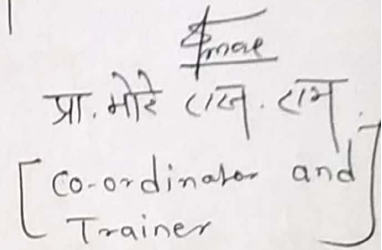 प्रा. मोरे राज. राम.
[Co-ordinator and
Trainer]